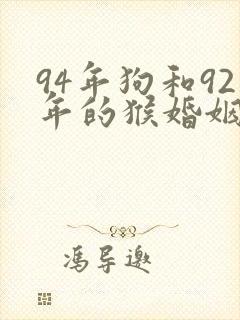 94年狗和92
年的猴婚姻
冯导邀